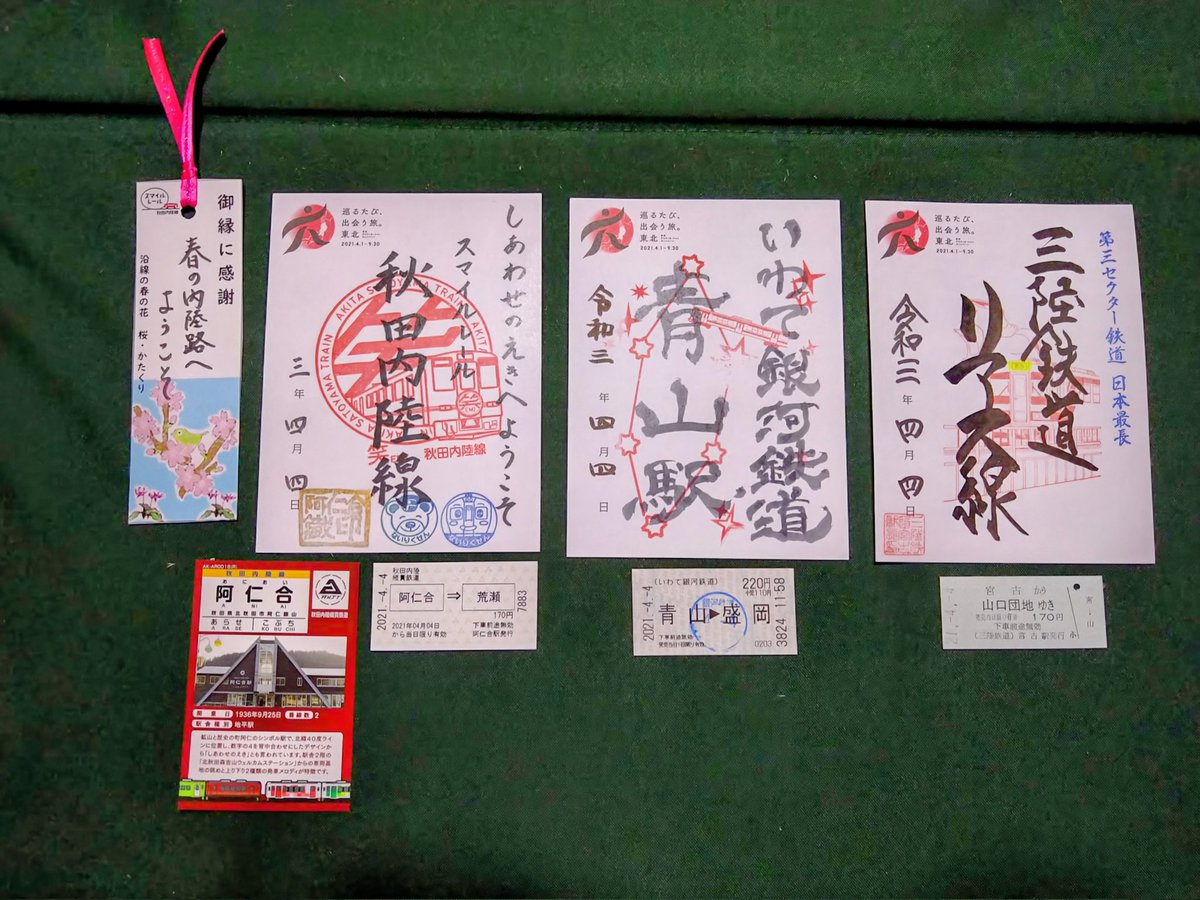 スマイル
レール
秋田内陸線
御縁に感謝
春の内陸路へ
ようこそ
沿線の春の花 桜・かたくり
巡るたび、
出会う旅。
東北
2021.4.1-9.30
しあわせのえきへようこそ
スマイルレール
秋田内陸線
三年四月四日
AKITA SATOYAMA TRAIN
笑
秋田内陸線
阿仁合
ないりくせん
ないりくせん
巡るたび、
出会う旅。
東北
2021.4.1-9.30
いわて銀河鉄道
青山駅
令和三年四月四日
巡るたび、
出会う旅。
東北
2021.4.1-9.30
第三セクター鉄道 日本最長
三陸鉄道
リアス線
令和三年四月四日
秋田内陸線
あにあい
阿仁合
(A NI AI)
秋田県北秋田市阿仁銀山
あらせ こぶち
A RA SE KO BU CHI
秋田内陸縦貫鉄道
開業日 1936年9月25日 番線数 2
駅舎種別 地平駅
鉱山と歴史の町阿仁のシンボル駅で、北緯40度ライ
ンに位置し、数字の4を背中合わせにしたデザインか
ら「しあわせのえき」とも言われています。駅舎2階の
「北秋田森吉山ウェルカムステーション」からの車両基
地の眺めと上り下り2種類の発車メロディが特徴です。
2021.-4.-4
秋田内陸
縦貫鉄道
阿仁合 ⇒ 荒瀬
170円
2021年04月04日
から当日限り有効
下車前途無効
阿仁合駅発行
7883
2021.-4.-4
(いわて銀河鉄道)
220円
小児110円
青山▶盛岡
下車前途無効
発売当日1回限り有効
0203
3824 11:58
宮古から
山口団地 ゆき
発売当日1回有効 170円
下車前途無効
(三陸鉄道) 宮古駅発行
小